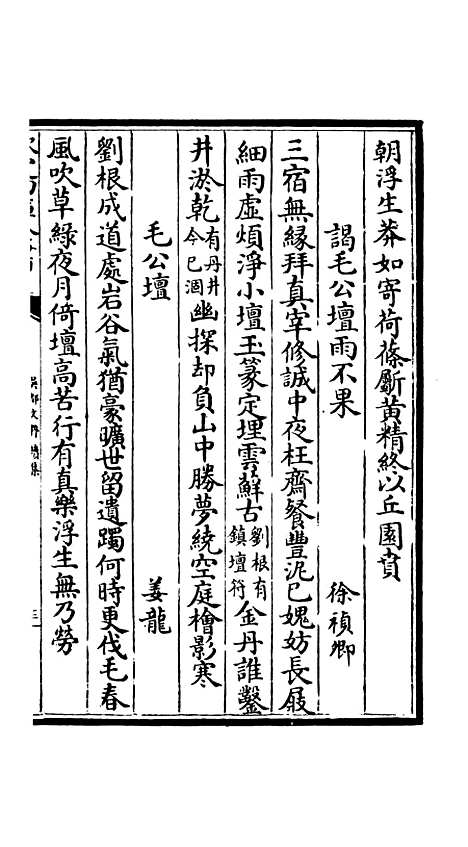 朝浮生莽如寄荷蓧斸黃精終以丘園賁
謁毛公壇雨不果 徐禎卿
三宿無緣拜真宰修誠中夜枉齋餐豐泥已媿妨長屐
細雨虛煩淨小壇玉篆定埋雲蘚古劉根有鎮壇符金丹誰鑿
井淤乾有丹井今已涸幽探却負山中勝夢繞空庭檜影寒
毛公壇 姜龍
劉根成道處岩谷氣猶豪曠世留遺躅何時更伐毛春
風吹草綠夜月倚壇高苦行有真樂浮生無乃勞
吳都文粹續集